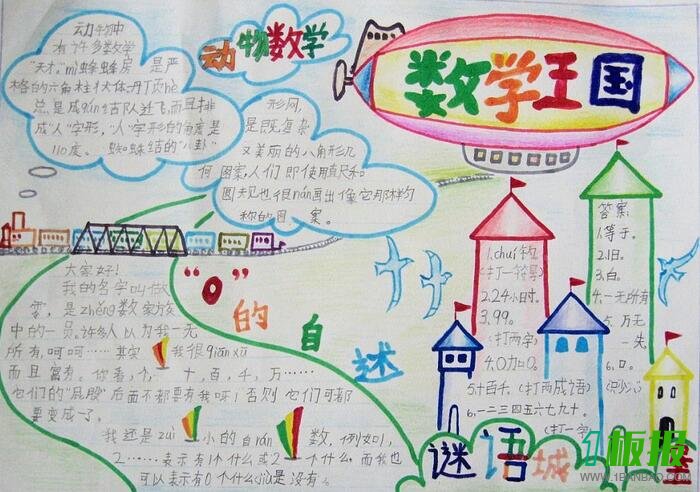 动物数学
数学王国
动物中
有许多数学
“天才”mì蜂蜂房 是严
格的六角柱状体.丹顶hè
总是成qún结队进飞,而且排
成“人”字形,“人”字形的角度是
110度。 蜘蛛结的“八卦”
形网,
是既复杂
又美丽的八角形几
何图案,人们即使用直尺和
圆规也很nán画出像它那样匀
称的图案。
“0”的自述
大家好!
我的名字叫做
零,是zhěng数家族
中的一员。许多人以为我一无
所有,呵呵……其实 我很qiān xū
而且富有。你看,个、十、百、千、万……
它们的“屁股”后面不都要有我呀!否则它们可都
要变成了。
我还是zuì小的自rán数,例如1,
2……表示有1个什么或2个什么,而我也
可以表示有0个什么jiù是没有。
1.chuí钓
(打一符号)
2.24小时。
3.99。
(打两字)
4.0加0。
5.十百千。(打两成语)
6.一二三四五六七九十
(打一字)
答案:
1.等于。
2.旧。
3.白。
4.一无所有
5.万无
一失
6.口。
(只少八)
谜语城堡
板报
WWW.1BANBAO.COM